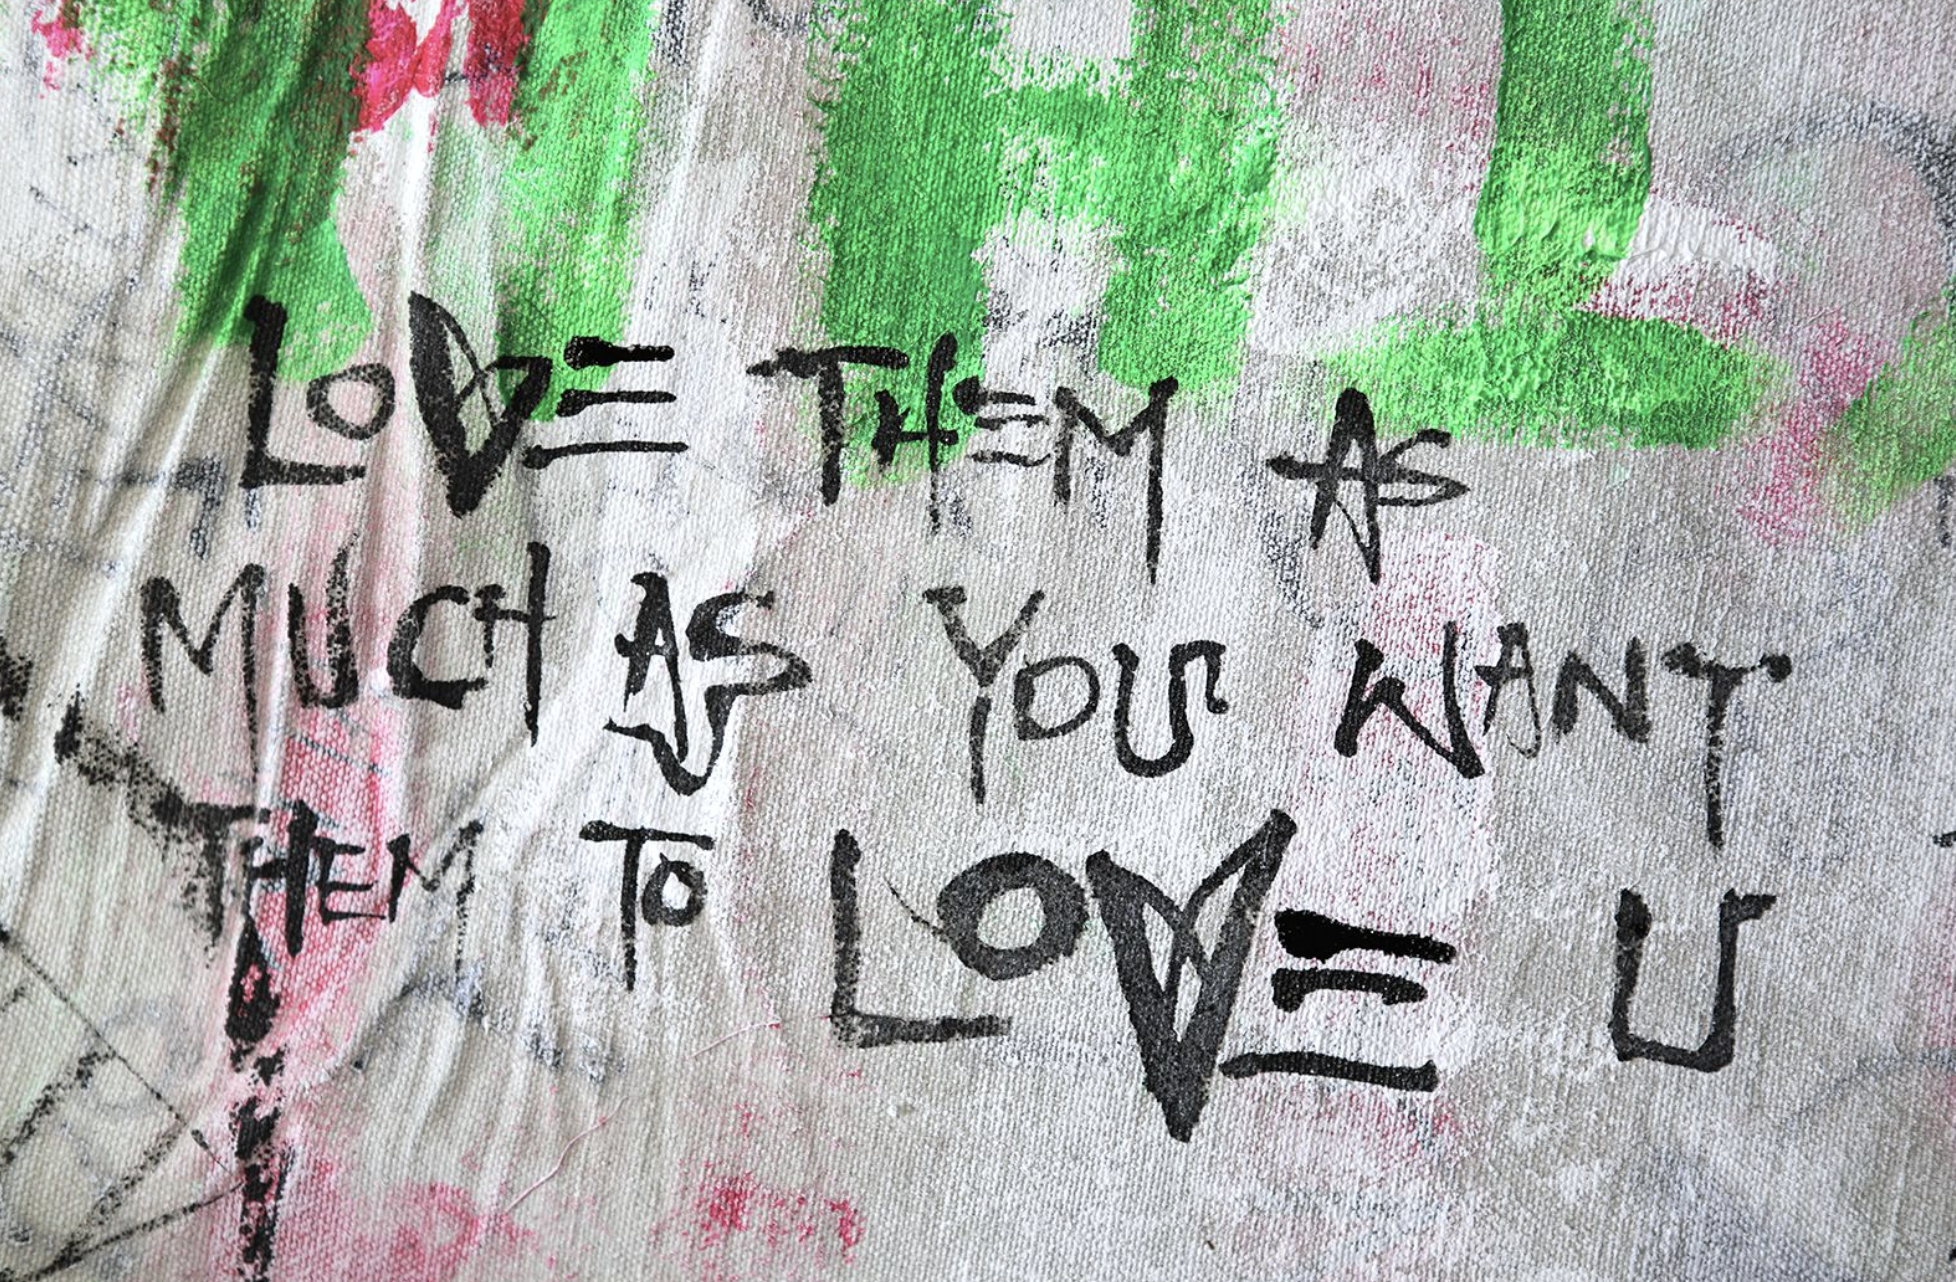 LOVE THEM AS
MUCH AS YOU WANT
THEM TO LOVE U